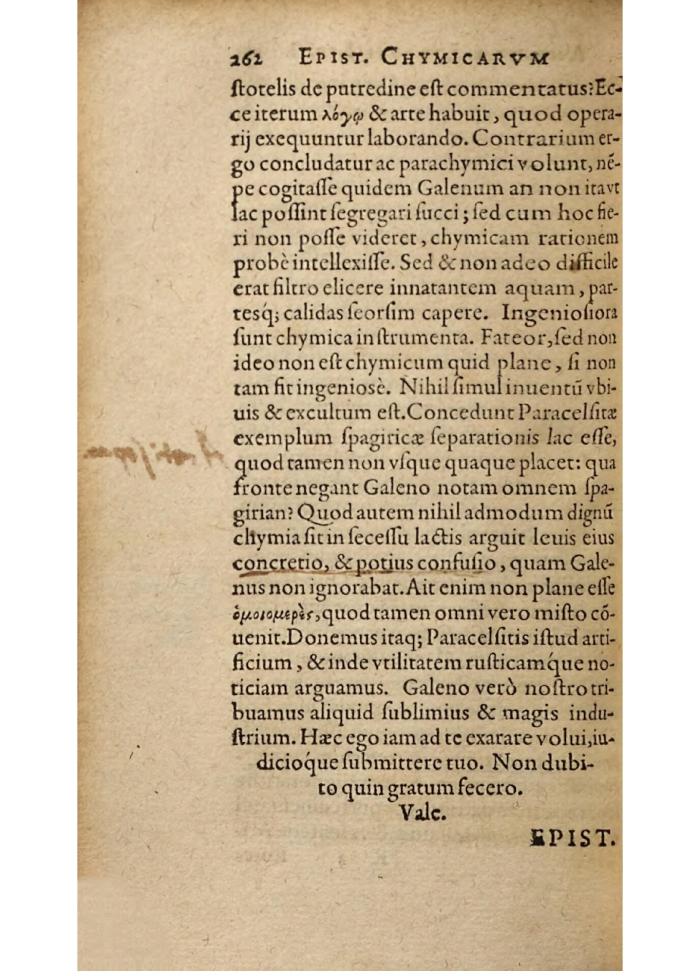 262 EPIST. CHYMICARVM
ſtotelis de putredine eſt commentatus? Ec-
ce iterum λόγῳ & arte habuit, quod opera-
rij exequuntur laborando. Contrarium er-
go concludatur ac parachymici volunt, nẽ-
pe cogitaſſe quidem Galenum an non ita vt
lac poſſint ſegregari ſucci; ſed cum hoc fie-
ri non poſſe videret, chymicam rationem
probè intellexiſſe. Sed & non adeo difficile
erat filtro elicere innatantem aquam, par-
tesq́; calidas ſeorſim capere. Ingenioſiora
ſunt chymica inſtrumenta. Fateor, ſed non
ideo non eſt chymicum quid plane, ſi non
tam fit ingeniosè. Nihil ſimul inuentũ vbi-
uis & excultum eſt. Concedunt Paracelſitæ
exemplum ſpagiricæ ſeparationis lac eſſe,
quod tamen non vſque quaque placet: qua
fronte negant Galeno notam omnem ſpa-
girian? Quod autem nihil admodum dignũ
chymia ſit in ſeceſſu lactis arguit leuis eius
concretio, & potius confuſio, quam Gale-
nus non ignorabat. Ait enim non plane eſſe
ὁμοιομερὲς, quod tamen omni vero miſto cõ-
uenit. Donemus itaq; Paracelſitis iſtud arti-
ficium, & inde vtilitatem ruſticamq́ue no-
ticiam arguamus. Galeno verò noſtro tri-
buamus aliquid ſublimius & magis indu-
ſtrium. Hæc ego iam ad te exarare volui, iu-
dicioq́ue ſubmittere tuo. Non dubi-
to quin gratum fecero.
Vale.
EPIST.